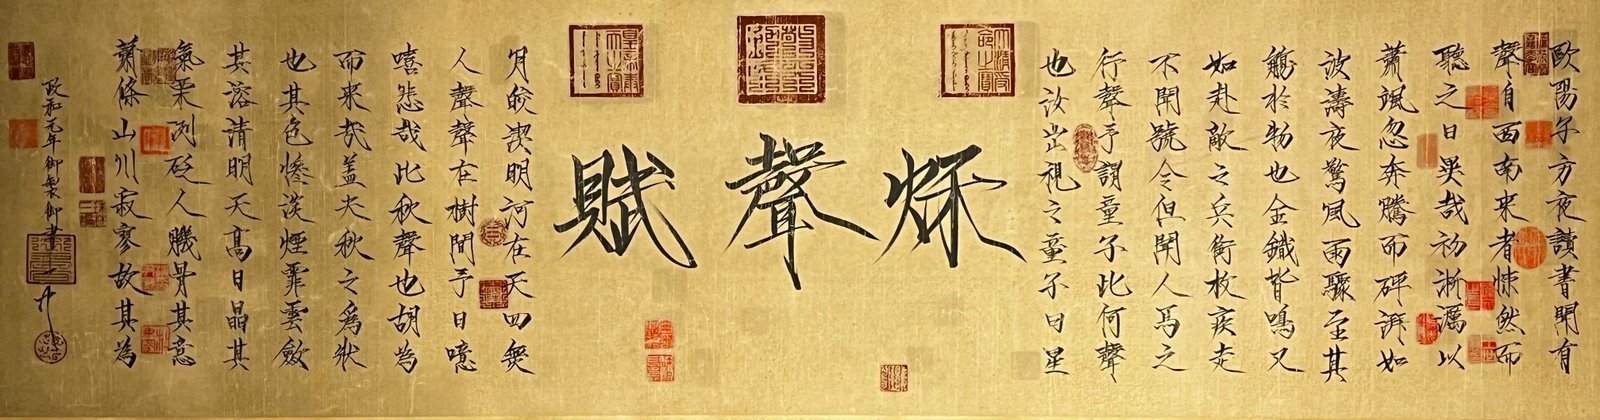 歐陽子方夜讀書聞有
聲自西南来者悚然而
聽之曰異哉初淅瀝以
蕭颯忽奔騰而砰湃如
波濤夜驚風雨驟至其
觸於物也金鐵皆鳴又
如赴敵之兵銜枚疾走
不聞號令但聞人馬之
行聲予謂童子此何聲
也汝出視之童子曰星
秌聲賦
月皎潔明河在天四無
人聲聲在樹間予曰噫
嘻悲哉此秋聲也胡為
而来哉蓋夫秋之為狀
也其色慘淡煙霏雲斂
其溶清明天高日晶其
氣栗冽砭人肌骨其意
蕭條山川寂寥故其為
政和元年御製御書